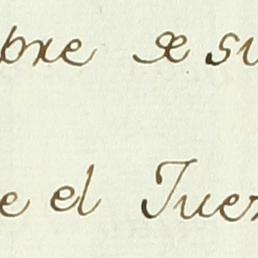 bre de su
e el Juez